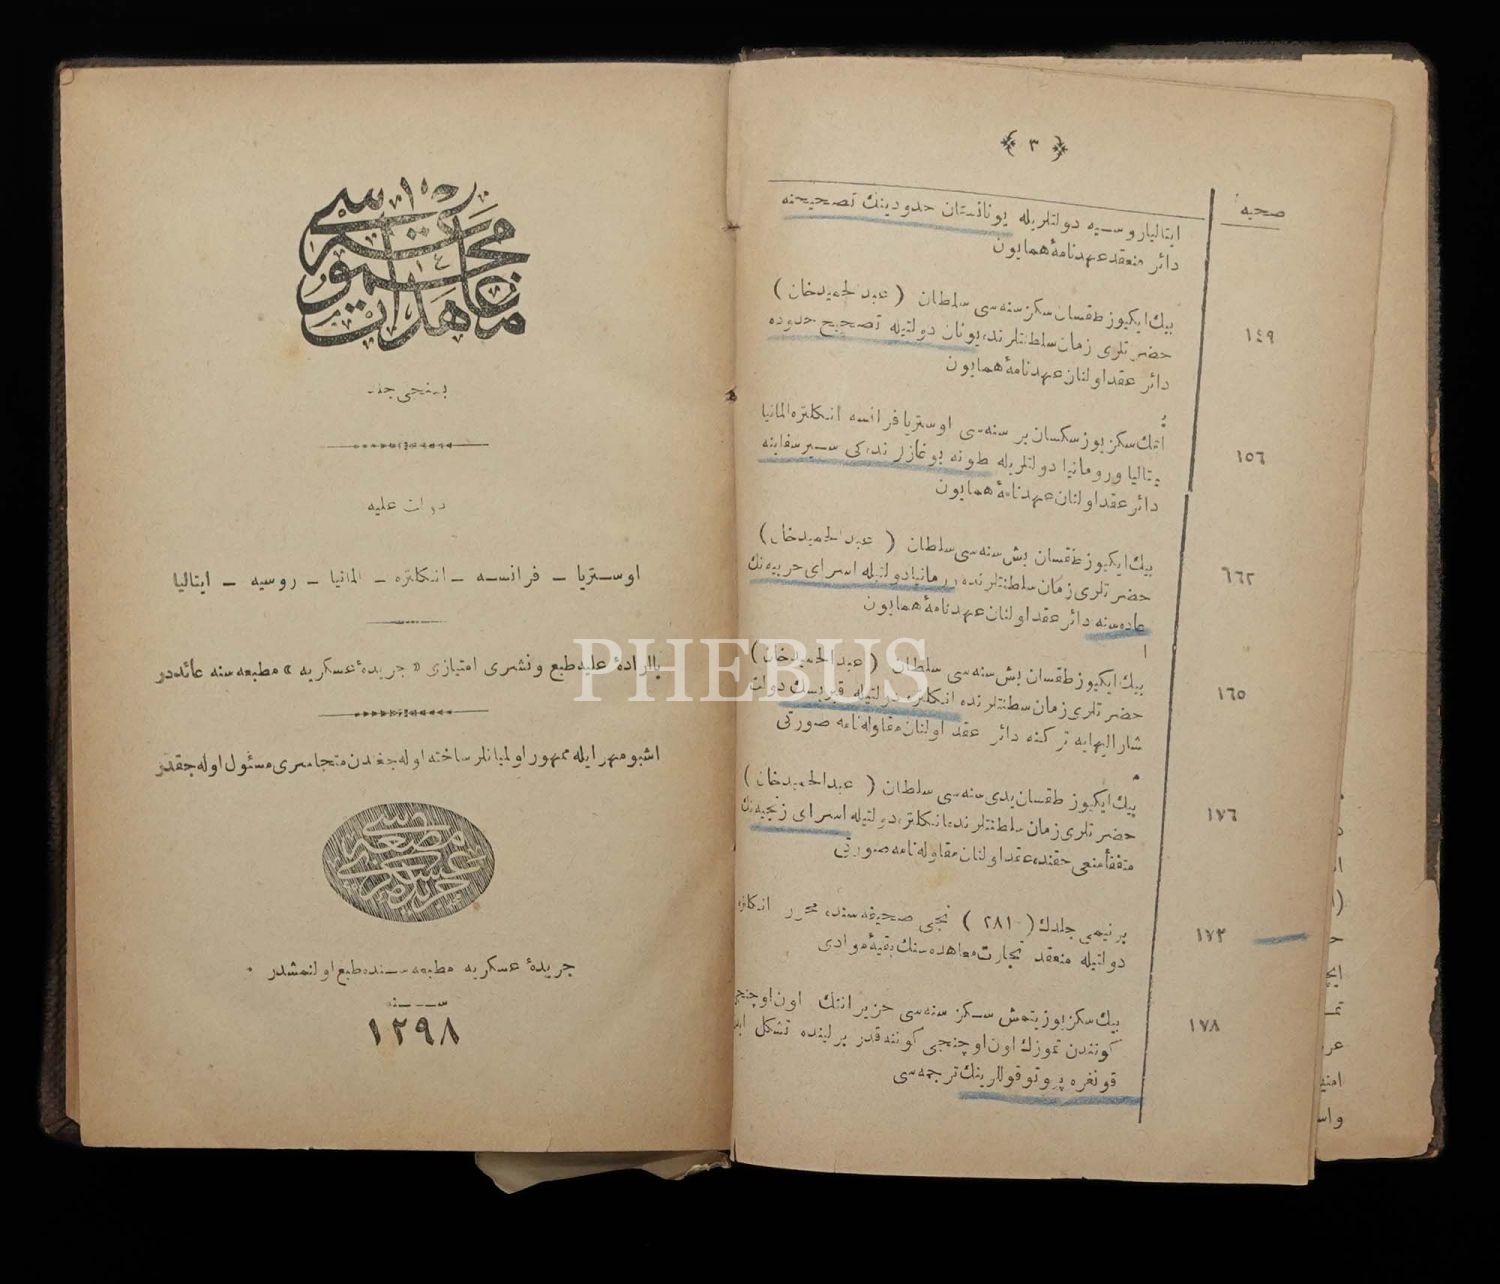 معاهدات مجموعه سی
بشنجی جلد
دولت علیه
اوستریا ـ فرانسه ـ انكلتره ـ المانیا ـ روسیه ـ ایتالیا
بالارادهٔ علیه طبع و نشری امتیازی « جریدهٔ عسكریه » مطبعه سنه عائددر
اشبو مهر ایله ممهور اولمیانلر ساخته اوله جغندن متجاسری مسئول اوله جقدر
جریدهٔ عسكریه مطبعه سنده طبع اولنمشدر
سنه
١٢٩٨
٣
صحیفه
ایتالیا روسیه دولتلریله یونانستان حدودینك تصحیحنه
دائر منعقد عهدنامهٔ همایون
١٤٩ بیك ایكیوز طقسان سكز سنه سی سلطان ( عبدالحمیدخان )
حضرتلری زمان سلطنتلرنده یونان دولتیله تصحیح حدوده
دائر عقد اولنان عهدنامهٔ همایون
١٥٦ بیك سكز یوز سكسان بر سنه سی اوستریا فرانسه انكلتره المانیا
ایتالیا و رومانیا دولتلریله طونه بوغازلرنده كی سیرسفاینه
دائر عقد اولنان عهدنامهٔ همایون
٦٦٢ بیك ایكیوز طقسان بش سنه سی سلطان ( عبدالحمیدخان )
حضرتلری زمان سلطنتلرنده رومانیا دولتیله اسرای حربیه نك
اعاده سنه دائر عقد اولنان عهدنامهٔ همایون
١٦٥ بیك ایكیوز طقسان بش سنه سی سلطان ( عبدالحمیدخان )
حضرتلری زمان سلطنتلرنده انكلتره دولتیله قبریسك دولت
مشارالیهایه تركنه دائر عقد اولنان مقاوله نامه صورتی
١٧٦ بیك ایكیوز طقسان یدی سنه سی سلطان ( عبدالحمیدخان )
حضرتلری زمان سلطنتلرنده انكلتره دولتیله اسرای زنجیه نك
متفقاً منعی حقنده عقد اولنان مقاوله نامه صورتی
١٧٣ برنجی جلدك ( ٢٨١ ) نجی صحیفه سنده محرر انكلتره
دولتیله منعقد تجارت معاهده سنك بقیهٔ موادی
١٧٨ بیك سكز یوز یتمش سكز سنه سی حزیراننك اون اوچنجی
كوندن تموزك اون اوچنجی كوننه قدر برلینده تشكل ایدن
قونغره پروتوقوللرینك ترجمه سی
PHEBUS